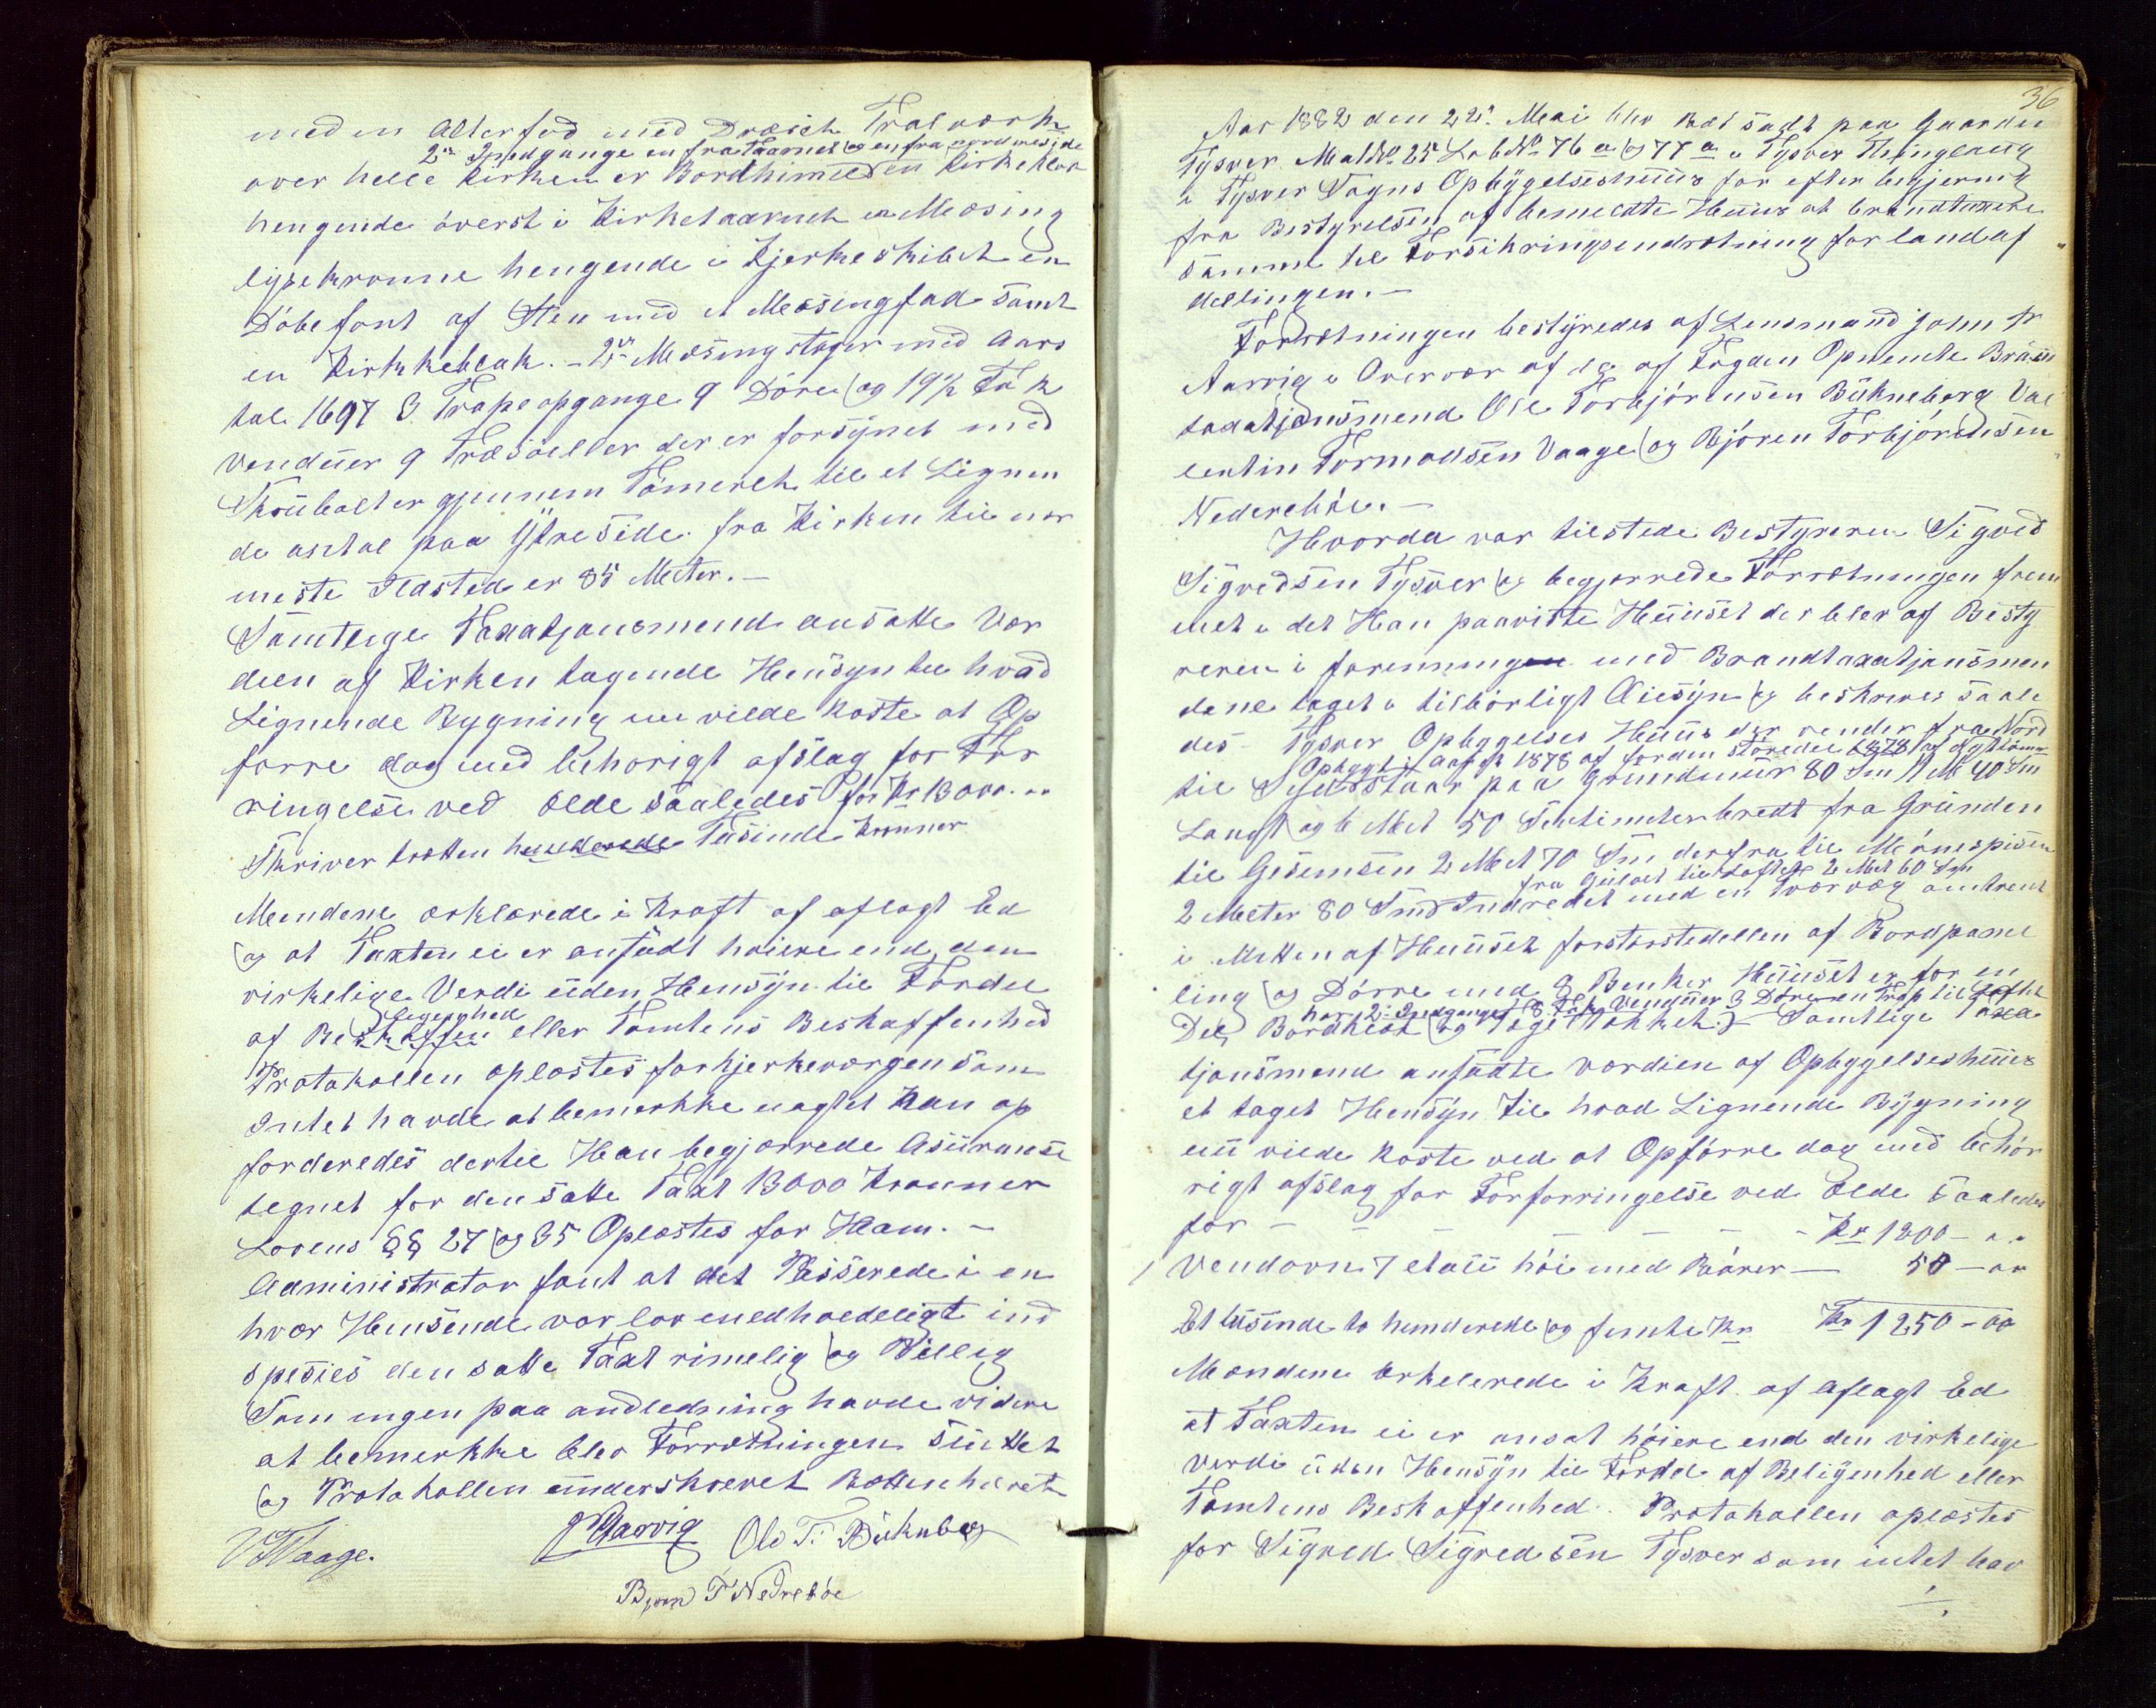 med en Alterfod med Dræiet Tralværk
2de Indgange en fra Taarnet og en fra nordresside
over hele Kirken er Bordhimmel en Kirkeklok
hengende överst i Kirketaarnet en Mæsing
lysekronne hengende i Kjerkeskibet en
Döbefont af Sten med et Mæssingfad samt
en Kirkkeblok. - 2de Mæsingstager med Aars
tal 1697 3 Trapeopgange 9 Döre og 19½ Fak
venduer 9 Træsöeller der er forsynet med
Skrübolter gjennem Tömeret til et Lignen
de antal paa Ytreside. fra Kirken til nær
meste Ildsted er 85 Meter. -
Samtlige Taxatjonsmend ansatte Vær
dien af Kirken tagende Hensyn til hvad
Lignende Bygning nu vilde koste at Op
førre dog med behorigt afslag for For
ringelse ved Ælde saaledes for Kr 13000. "
Skriver trætten hunderede Tusinde Kronner
Mendene ærklærede i Kraft af aflagt Ed
og at Taxten ei er ansadt höiere end den
virkelige Verdi uden Hensyn til Fordel
ligenhed
af Beskaffen eller Tomtens Beskaffenhed
Protokollen oplæstes for kjerkeværgen som
Intet havde at bemerkke uagtet Han op
forderedes dertil Han begjærrede Asüranse
tegnet for den satte Taxt 13000 Kronner
Lovens §§ 27 og 35 Oplæstes for Ham. -
Administrator fant at det Passerede i en
hvær Hensende var lovmedholdeligt ind
spesies den satte Taxt rimelig og Billig
Som ingen paa andledning havde videre
at bemerkke blev Forretningen sluttet
og Protokollen underskrevet Retten hævet
VTVaage. JAarvig Ole T. Bükneberg
Bjørn T Nedrebøe
36
Aar 1882 den 22de Mai blev Ret sadt paa Gaarden
Tysver Mat No 25 Løb No 76 a og 77 a i Tysver Thinglaug
i Tysver Sogns Opbyggelseshuus for efter begjering
fra Bestyrelsen af bemeldte Huus at brandtaxere
samme til Forsikringsindretning for landaf
dellingen. -
Forretningen bestyredes af Lensmand John
Aarvig i Overvær af de af Fogden Opnevnte Brann
taxatjonsmend Ole Torbjörnsen Bükneberg Val
lentin Tormodsen Vaage og Björen Torbjörensen
Nedereböe. -
Hvorda var tilstede Bestyreren Sigved
Sigvedsen Tysver og begjærrede Forretningen frem
met i det Han paaviste Huuset der blev af Besty
reren i forenning med Brandtaxatjonsmen
dene taget i tilbörligt Öiesyn og beskreves saale
des - Tysver Opbyggelses Huus der vender fra Nord
Opbygt i Aaret 1878 af forden störedel af nyt tömer
til Syd Staar paa Grundmuur 80 Sm 11 M 40 Sm
Langt og 6 Met 50 Sentimeter bredt fra Grunden
til Gesimsen 2 Met 70 Sm derfra til Mönespisen
fra Gulvet til Loftet 2 Met 60 Sm
2 Meter 80 Sm Indredet med en Tværvæg omtrent
i Mitten af Huuset forstørstedellen af Bordpanel
ling og Dörre med 8 Benker Huuset er for en
har 2 Indgange 8 Fak Venduer 3 Döre en Trap til Loftet
Del Bordklæt og Tegltækket - Samtlige Taxa
tjonsmend ansatte værdien af Opbyggelseshuus
et taget Hensyn til hvad Lignende Bygning
nu vilde koste ved at Opförre dog med behör
rigt afslag for Forforringelse ved Ælde saaledes
for - - - - - - Kr 1200 - "
1 Vendovn 7 etau höi med Rörer - 50 - "
Et tusinde to hunderede og femti Kr Kr 1250 - 00
Mændene Erkelerede i Kraft af Aflagt Ed
at Taxten ei er ansat höiere end den virkelige
verdi uden Hensyn til Fordel af Beligenhed eller
Tomtens Beskaffenhed. Protokollen oplæstes
for Sigved Sigvedsen Tysver som intet hav